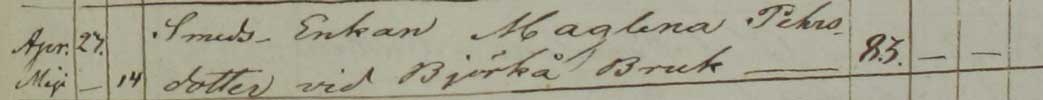 Apr. 27. Smeds- Enkan Maglena Pehrs-
Maji — 14 dotter vid Björkå Bruk — 83. — —